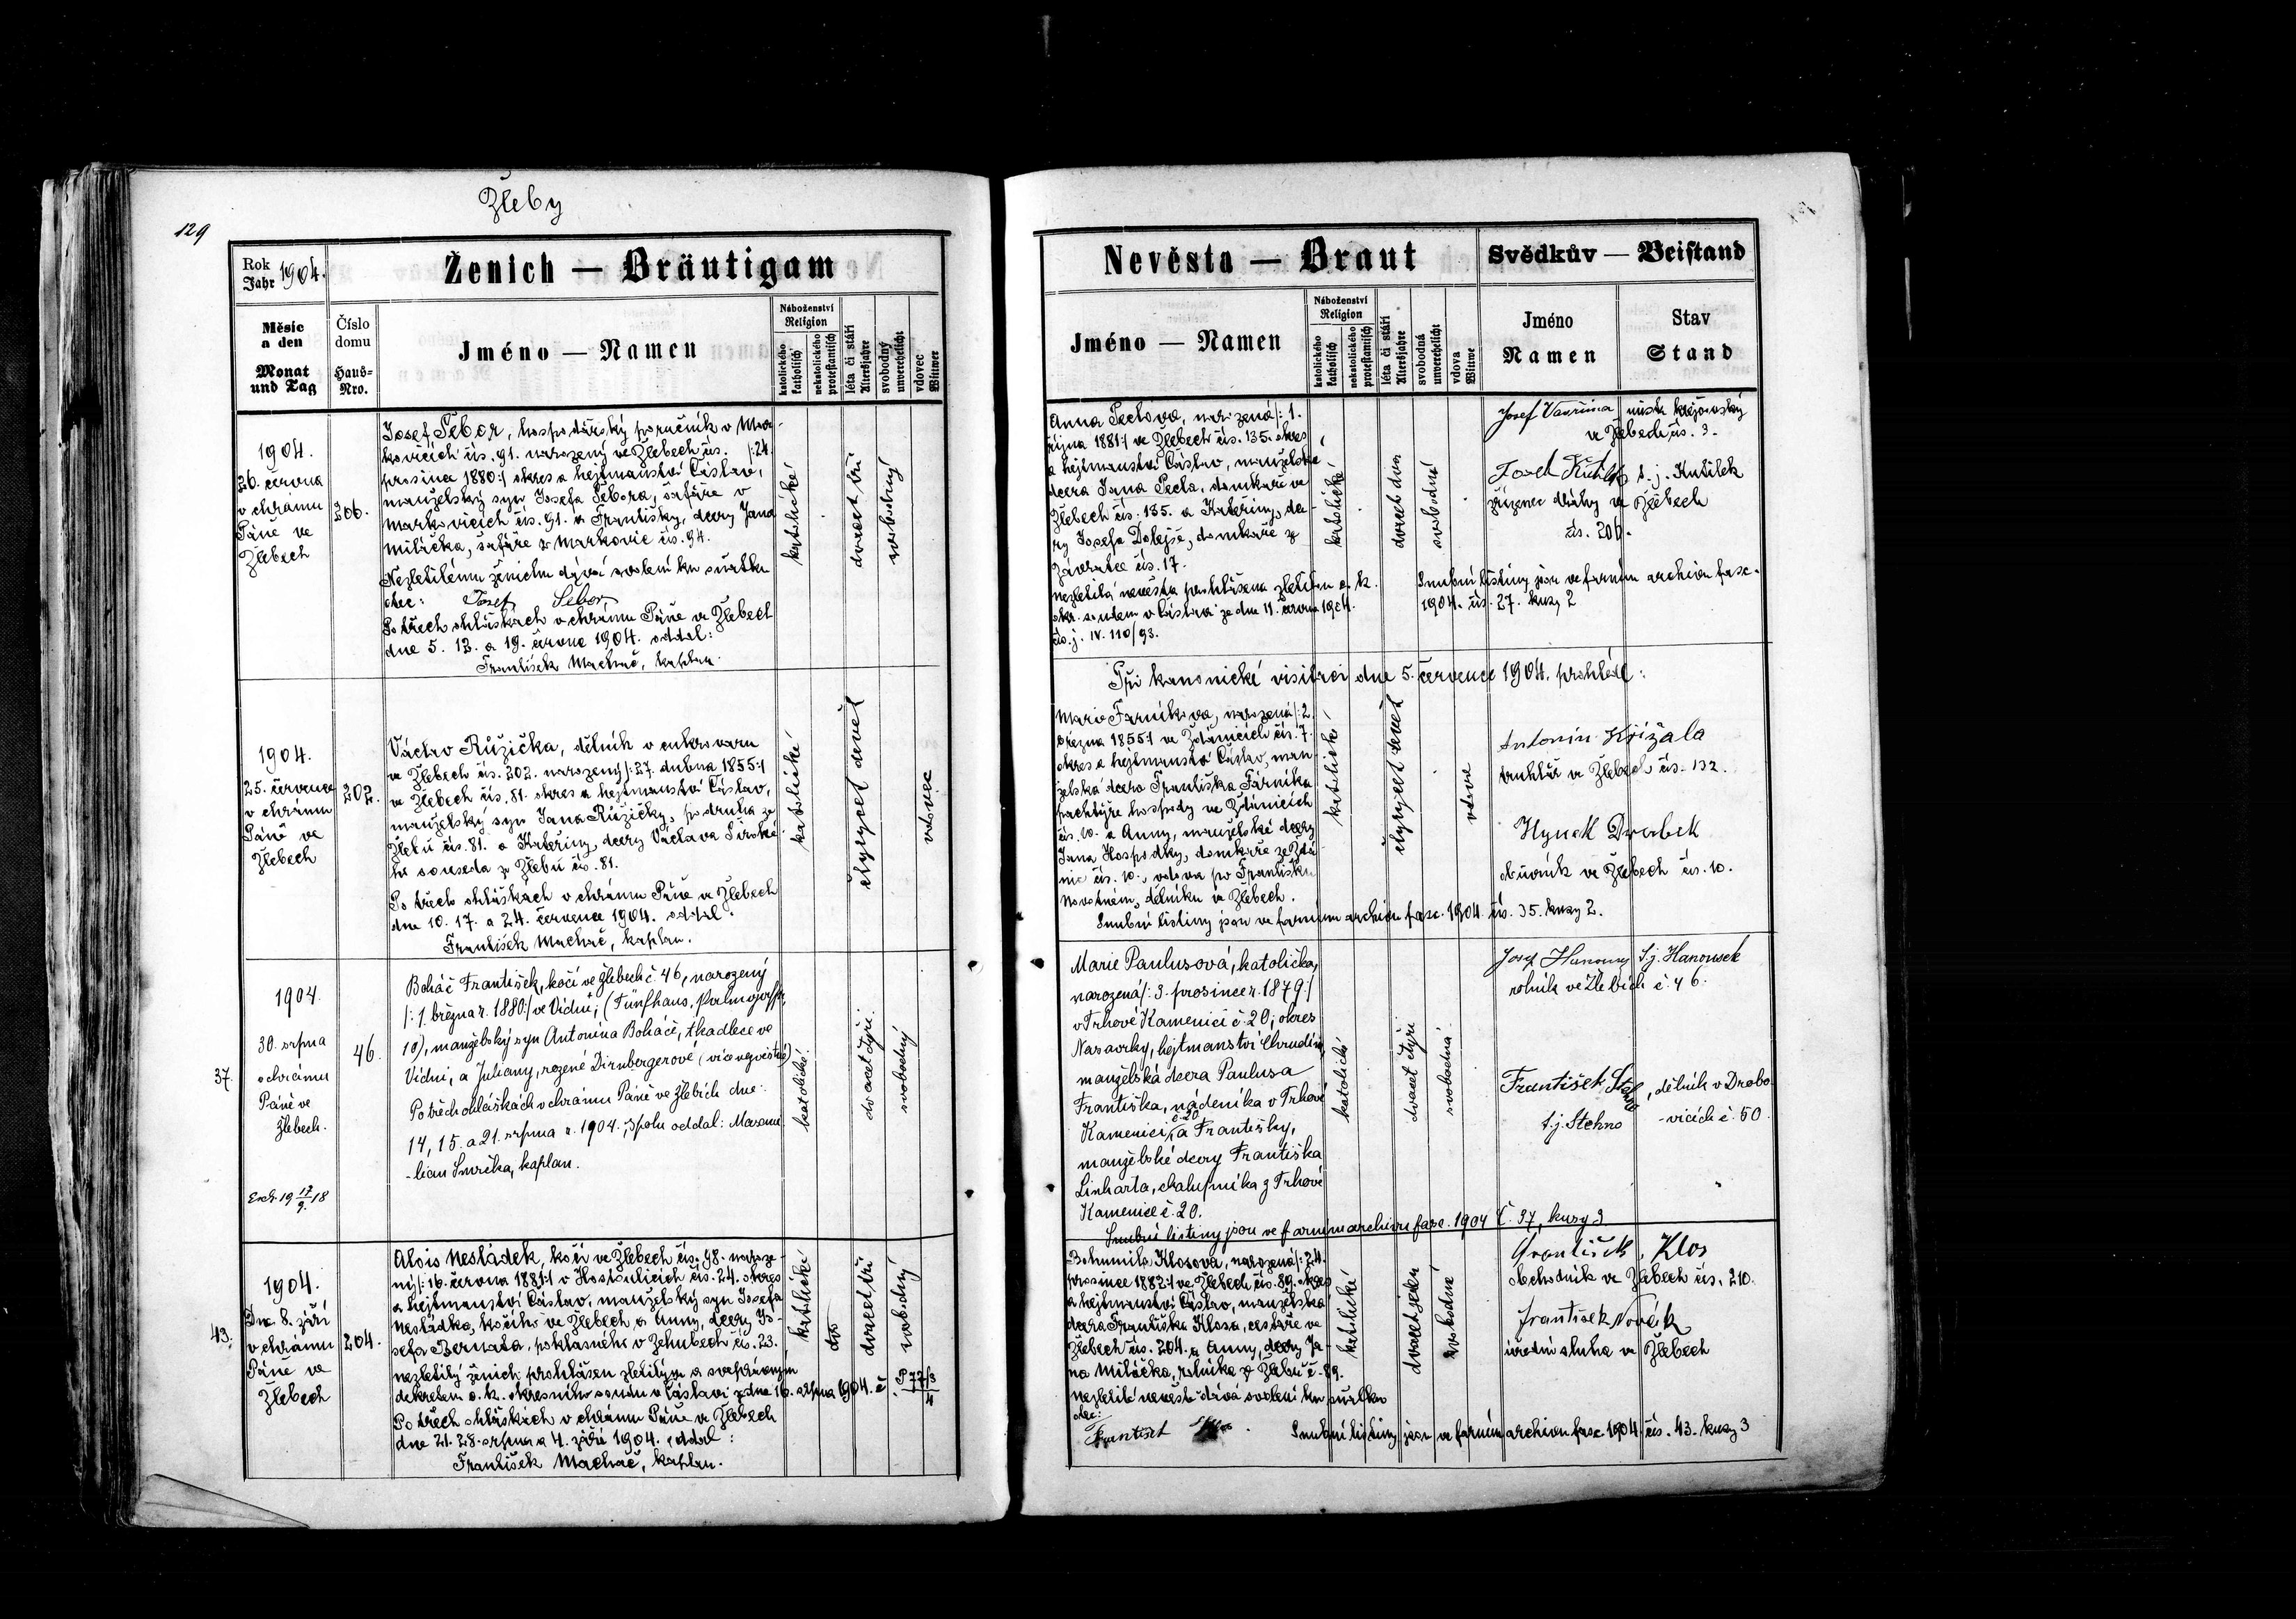 Žleby
129
Rok
Jahr 1904.
Ženich — Bräutigam
Měsíc
a den
Monat
und Tag
Číslo
domu
Haus-
Nro.
Jméno — Namen
Náboženství
Religion
katolického
katholisch
nekatolického
protestantisch
léta či stáří
Altersjahre
svobodný
unverehelicht
vdovec
Wittwer
1904.
26. června
v chrámu
Páně ve
Žlebech
206.
Josef Šebor, hospodářský poručník v Mar-
kovicích čís. 91. narozený ve Žlebech čís. /:24.
prosince 1880:/ okres a hejtmanství Čáslav,
manželský syn Josefa Šebora, šafáře v
Markovicích čís. 91. a Františky, dcery Jana
Miláčka, šafáře z Markovic čís. 94.
Nezletilému ženichu dává svolení ku sňatku
otec: Josef Šebor
Po třech ohláškách v chrámu Páně ve Žlebech
dne 5. 12. a 19. června 1904. oddal:
František Machač, kaplan.
katolické
dvacet tři
svobodný
1904.
25. července
v chrámu
Páně ve
Žlebech
202.
Václav Růžička, dělník v cukrovaru
ve Žlebech čís. 202. narozený /:27. dubna 1855:/
ve Žlebech čís. 81. okres a hejtmanství Čáslav,
manželský syn Jana Růžičky, podruha ze
Žlebů čís. 81. a Kateřiny, dcery Václava Široké-
ho souseda ze Žlebů čís. 81.
Po třech ohláškách v chrámu Páně ve Žlebech
dne 10. 17. a 24. července 1904. oddal:
František Machač, kaplan.
katolické
čtyrycet devět
vdovec
37.
1904.
30. srpna
v chrámu
Páně ve
Žlebech.
46.
Boháč František, kočí ve Žlebech č 46, narozený
/:1. března r. 1880:/ ve Vídni; (Fünfhaus,
10), manželský syn Antonína Boháče, tkadlece ve
Vídni, a Juliany, rozené Dirnbergerové (více nezjištěno)
Po třech ohláškách v chrámu Páně ve Žlebích dne:
14, 15. a 21. srpna r. 1904. spolu oddal:
Smrčka, kaplan.
katolické
dvacet čtyři
svobodný
43.
1904.
Dne 8. září
v chrámu
Páně ve
Žlebech
204.
Alois Nesládek, kočí ve Žlebech čís. 98. naroze-
ný /:16. června 1881:/ v Hostoulicích čís. 24. okres
a hejtmanství Čáslav, manželský syn Josefa
Nesládka, kočího ve Žlebech a Anny, dcery Jo-
sefa Bernata, poklasného v Zehubech čís. 23.
nezletilý ženich prohlášen zletilým a svéprávným
dekretem c. k. okresního soudu v Čáslavi ze dne 16. srpna 1904. č. P 77/3 4
Po třech ohláškách v chrámu Páně ve Žlebech
dne 21. 28. srpna a 4. září 1904. oddal:
František Machač, kaplan.
katolické
dvacet tři
svobodný
Nevěsta — Braut
Svědkův — Beistand
Jméno — Namen
Náboženství
Religion
katolického
katholisch
nekatolického
protestantisch
léta či stáří
Altersjahre
svobodná
unverehelicht
vdova
Wittwe
Jméno
Namen
Stav
Stand
Anna Pechova, narozená /:1.
října 1881:/ ve Žlebech čís. 135. okres
a hejtmanství Čáslav, manželská
dcera Jana Pecha, domkáře ve
Žlebech čís. 135. a Kateřiny, dce-
ry Josefa Dolejše, domkáře ze
Závratce čís. 17.
nezletilá nevěsta prohlášena zletilou c. k.
okr. soudem v Čáslavi ze dne 11. června 1904.
čís. j. IV. 110/93.
katolické
dvacet dva
svobodná
Josef Vavřina mistr krejčovský
ve Žlebech čís. 3.
Josef Kutílek t. j. Kutílek
zřízenec dráhy ve Žlebech
čís. 206.
Snubní listiny jsou ve farním archivu fasc.
1904. čís. 27. kusy 2
Při kanonické visitaci dne 5. července 1904. prohlédl:
Marie Fárníkova, narozená /:2.
března 1855:/ ve Ždánicích čís. 7.
okres a hejtmanství Čáslav, man-
želská dcera Františka Fárníka
pachtýře hospody ve Ždánicích
čís. 10. a Anny, manželské dcery
Jana Hospodky, domkáře ze Ždá-
nic čís. 10., vdova po Františku
Novotném, dělníku ve Žlebech.
Snubní listiny jsou ve farním archivu fasc. 1904. čís. 35. kusy 2.
katolické
čtyrycet devět
vdova
Antonín Křížala
truhlář ve Žlebech čís. 132.
Hynek Drabek
obuvník ve Žlebech čís. 10.
Marie Paulusová, katolička,
narozená /:3. prosince r. 1879:/
v Trhové Kamenici č. 20, okres
Nasavrky, hejtmanství Chrudim,
manželská dcera Paulusa
Františka, nádeníka v Trhové
Kamenici č 20 a Františky,
manželské dcery Františka
Linharta, chalupníka z Trhové
Kamenice č. 20.
Snubní listiny jsou ve farním archivu fasc. 1904 č. 37, kusy 3
katolické
dvacet čtyři
svobodná
Josef Hanousek t. j. Hanousek
rolník ve Žlebích č. 46.
František Stehno, dělník v Drobo-
t. j. Stehno -vicích č. 50.
Bohumila Klosova, narozená /:24.
prosince 1882:/ ve Žlebech čís. 89. okres
a hejtmanství Čáslav, manželská
dcera Františka Klosa, cestáře ve
Žlebech čís. 204. a Anny, dcery Ja-
na Miláčka, rolníka ze Žlebů č. 89.
nezletilé nevěstě dává svolení ku sňatku
otec:
František Klos.
Snubní listiny jsou ve farním archivu fasc. 1904 čís. 43. kusy 3
katolické
dvacet jeden
svobodná
František Klos
obchodník ve Žlebech čís. 210.
František Novák
úřední sluha ve Žlebech